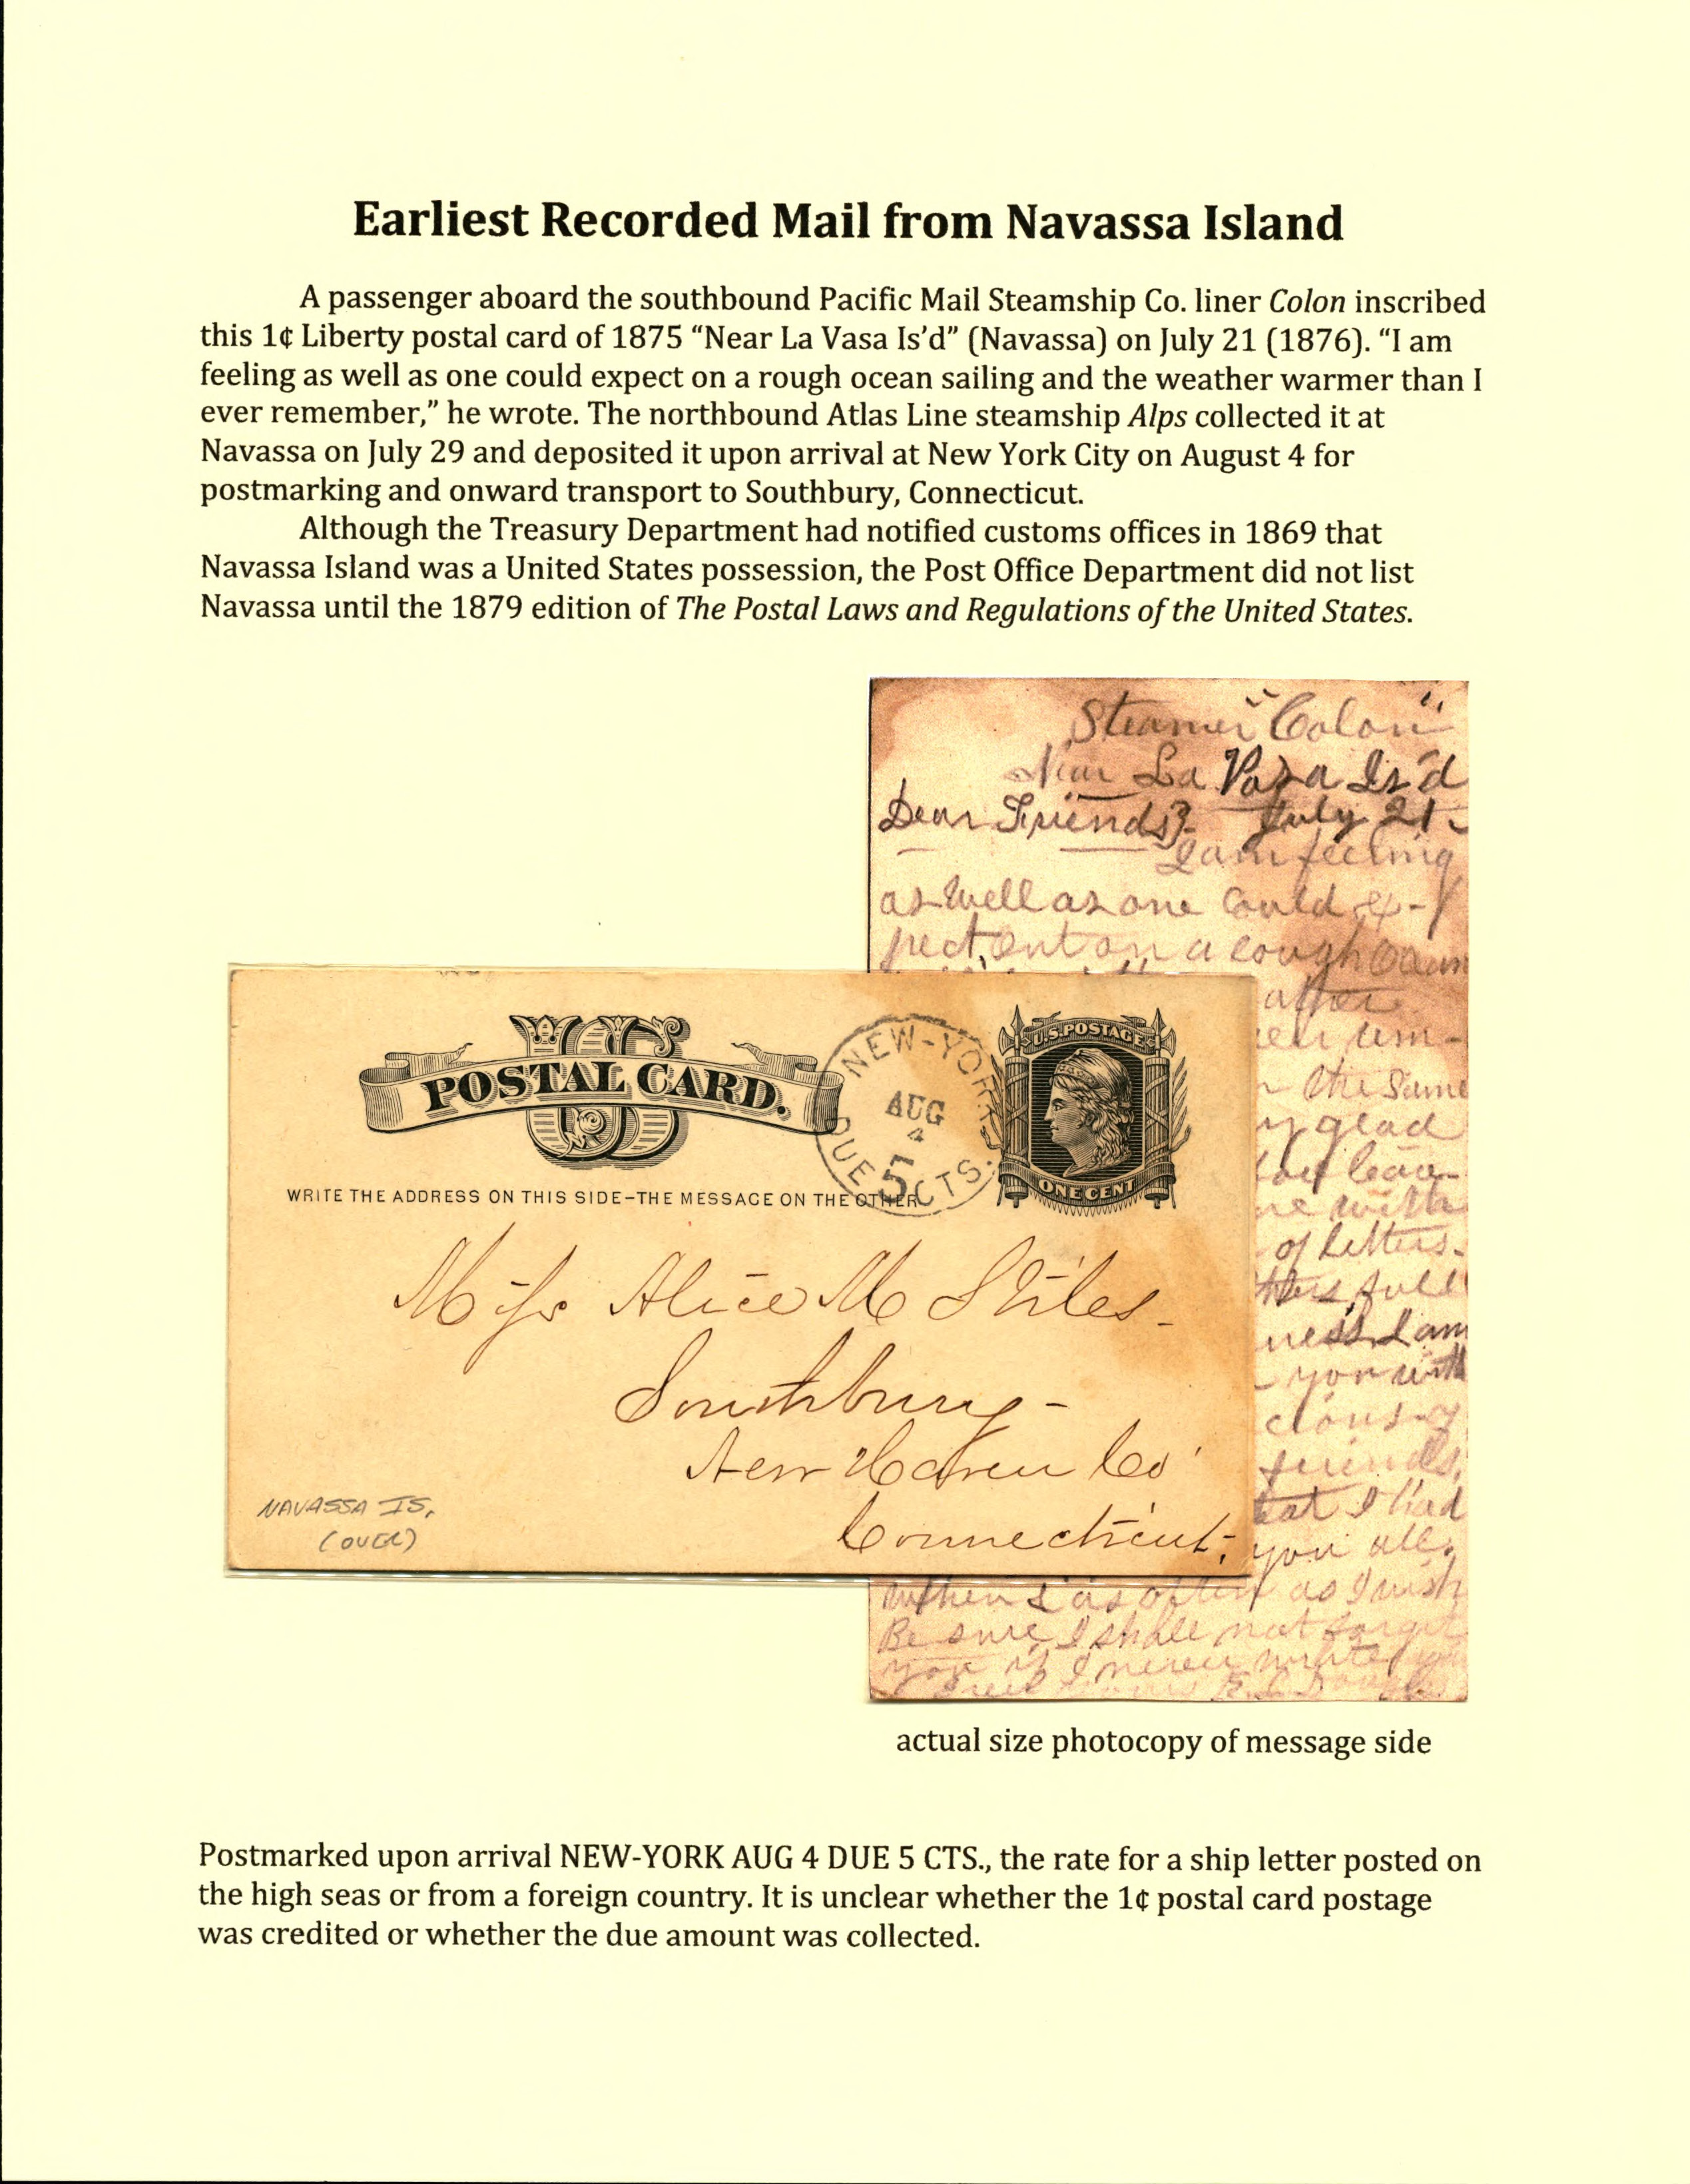 Earliest Recorded Mail from Navassa Island
A passenger aboard the southbound Pacific Mail Steamship Co. liner Colon inscribed
this 1¢ Liberty postal card of 1875 “Near La Vasa Is’d” (Navassa) on July 21 (1876). “I am
feeling as well as one could expect on a rough ocean sailing and the weather warmer than I
ever remember,” he wrote. The northbound Atlas Line steamship Alps collected it at
Navassa on July 29 and deposited it upon arrival at New York City on August 4 for
postmarking and onward transport to Southbury, Connecticut.
Although the Treasury Department had notified customs offices in 1869 that
Navassa Island was a United States possession, the Post Office Department did not list
Navassa until the 1879 edition of The Postal Laws and Regulations of the United States.
Steamer "Colon"
Near La Vasa Is'd
Dear Friends July 21
I am feeling
as well as one could ex-
pect out on a rough ocean
the same
glad
of letters.
full
I am
you with
friends,
that I had
you all.
as often as I wish
Be sure I shall not forget
you if I never write
U.S. POSTAGE
ONE CENT
US
POSTAL CARD.
NEW-YORK
AUG
4
DUE 5 CTS.
WRITE THE ADDRESS ON THIS SIDE-THE MESSAGE ON THE OTHER
Miss Alice M Stiles.
Southbury-
New Haven Co
Connecticut.
NAVASSA IS.
(OVER)
actual size photocopy of message side
Postmarked upon arrival NEW-YORK AUG 4 DUE 5 CTS., the rate for a ship letter posted on
the high seas or from a foreign country. It is unclear whether the 1¢ postal card postage
was credited or whether the due amount was collected.